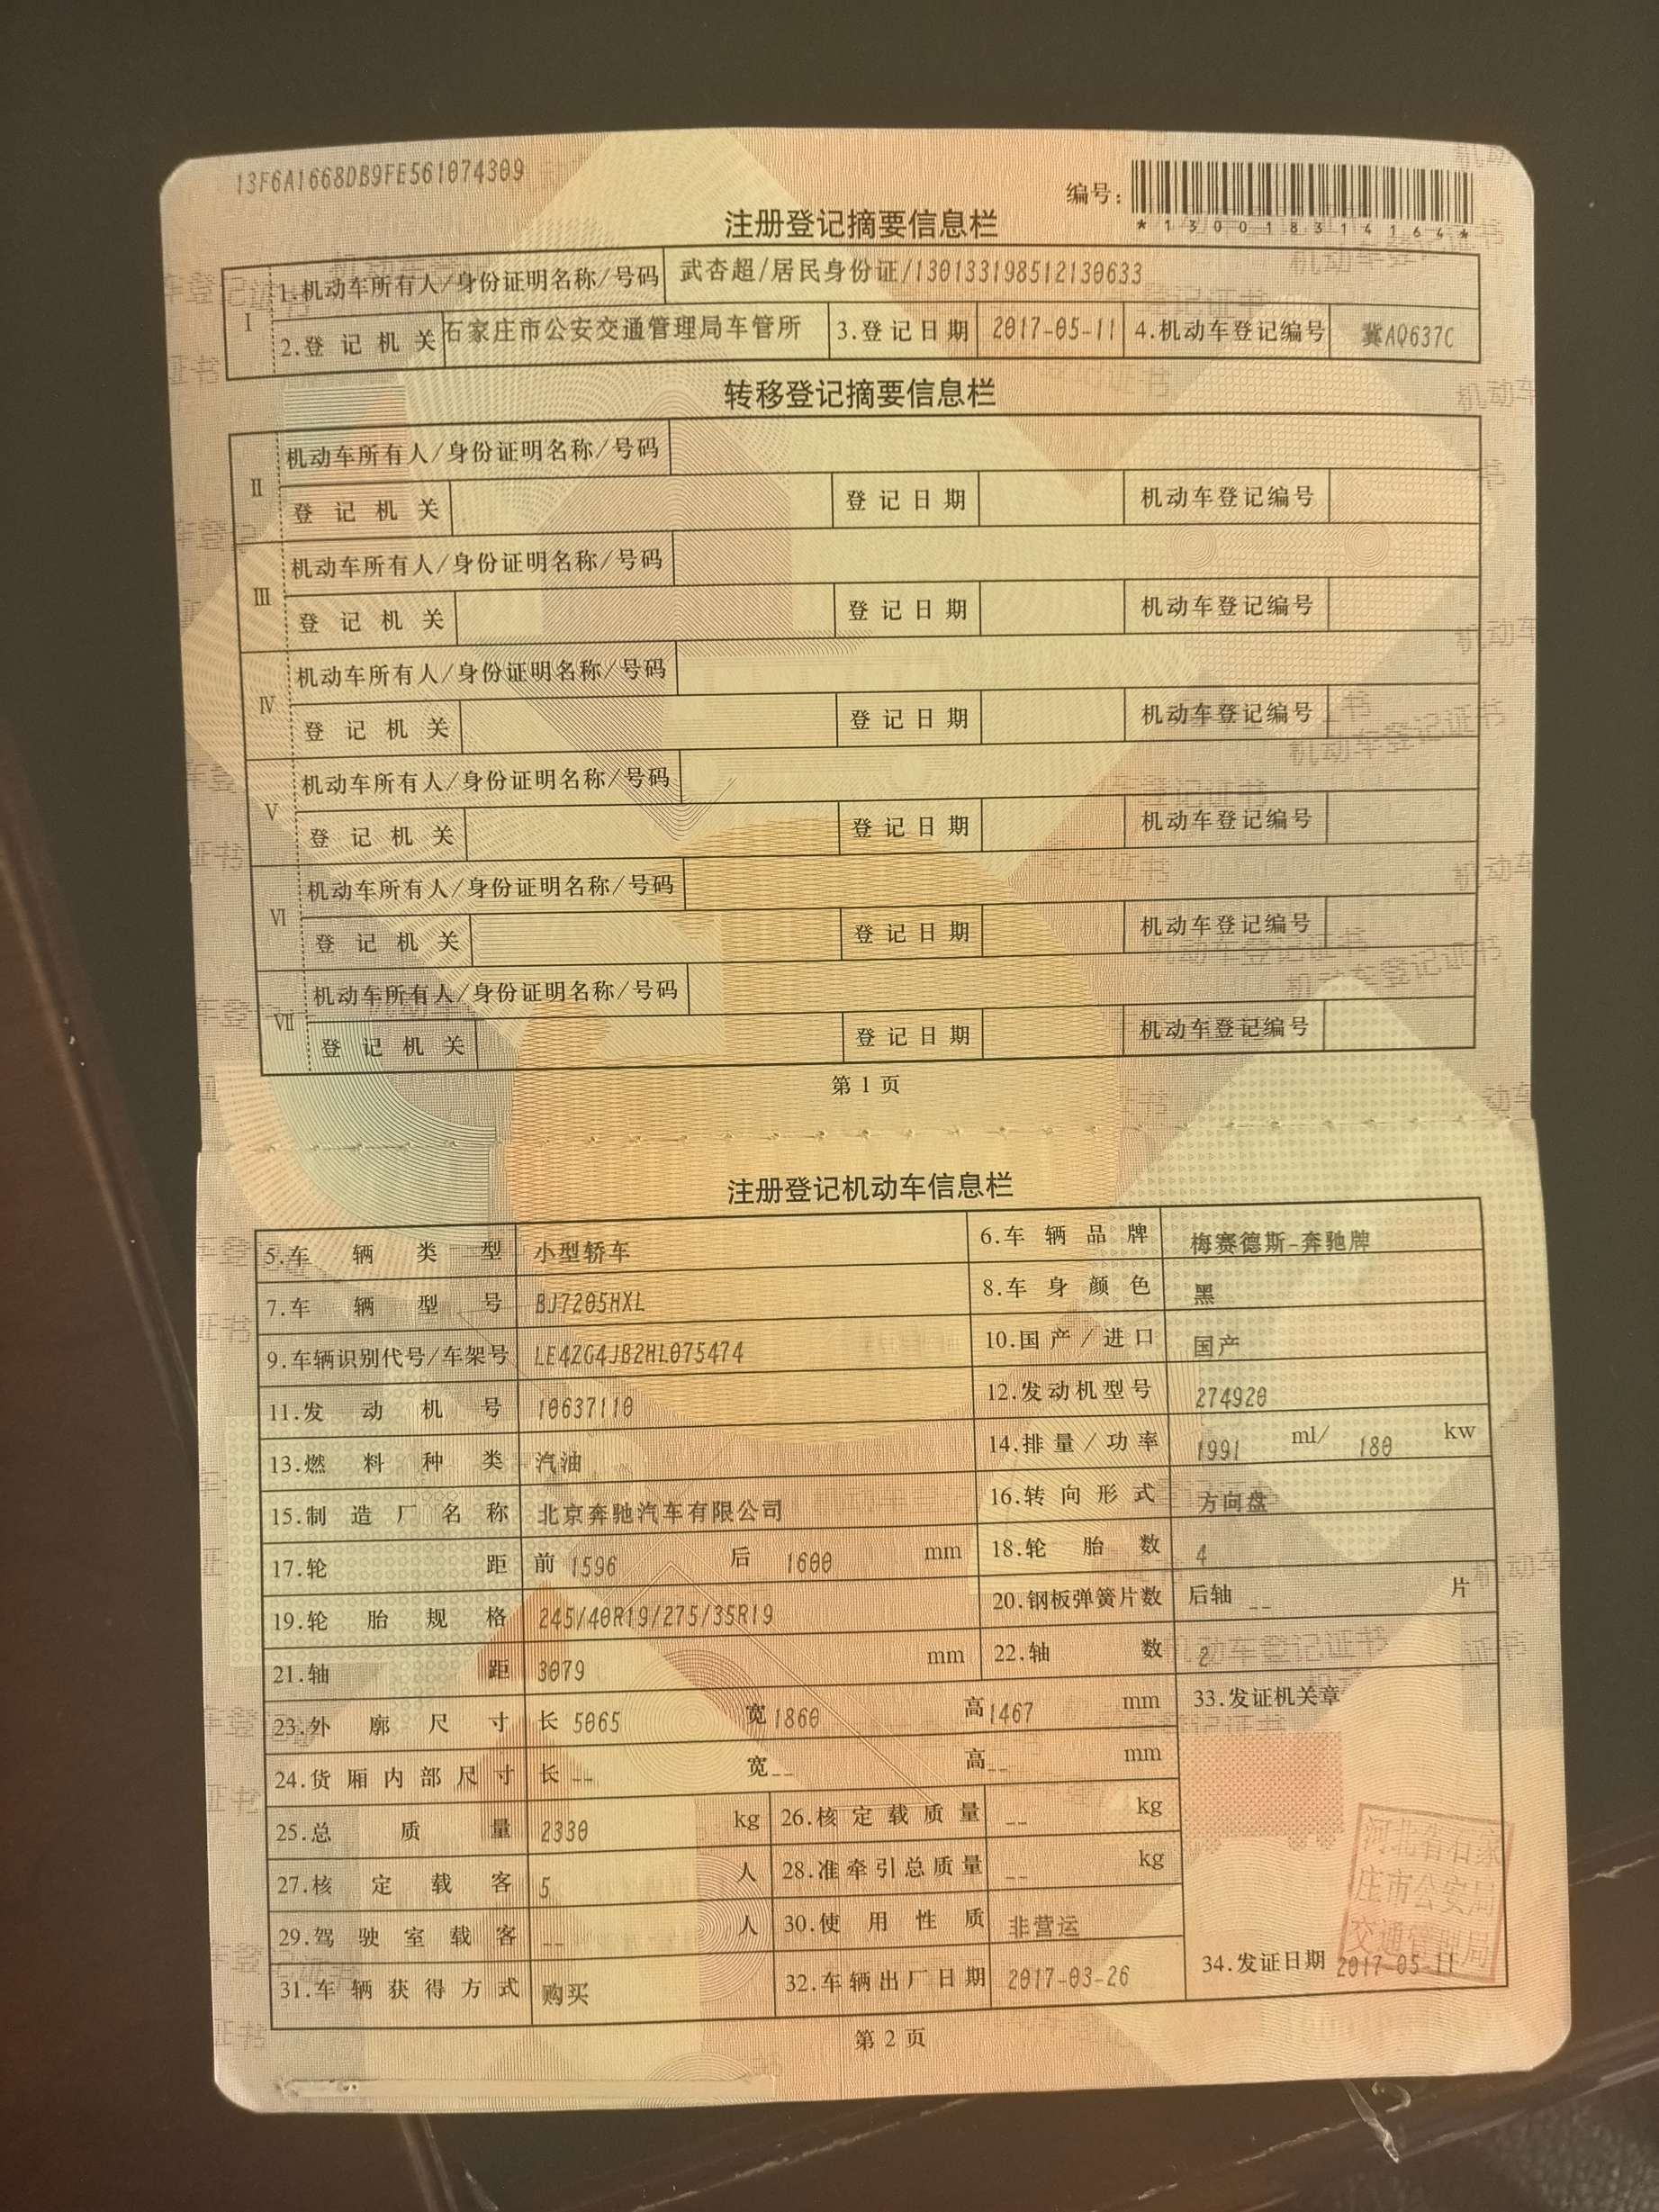 13F6A1668DB9FE561074309
编号:
*130018314164*
注册登记摘要信息栏
I
1.机动车所有人/身份证明名称/号码 武杏超/居民身份证/130133198512130633
2.登记机关 石家庄市公安交通管理局车管所 3.登记日期 2017-05-11 4.机动车登记编号 冀AQ637C
转移登记摘要信息栏
II
机动车所有人/身份证明名称/号码
登记机关 登记日期 机动车登记编号
III
机动车所有人/身份证明名称/号码
登记机关 登记日期 机动车登记编号
IV
机动车所有人/身份证明名称/号码
登记机关 登记日期 机动车登记编号
V
机动车所有人/身份证明名称/号码
登记机关 登记日期 机动车登记编号
VI
机动车所有人/身份证明名称/号码
登记机关 登记日期 机动车登记编号
VII
机动车所有人/身份证明名称/号码
登记机关 登记日期 机动车登记编号
第 1 页
注册登记机动车信息栏
5.车辆类型 小型轿车 6.车辆品牌 梅赛德斯-奔驰牌
7.车辆型号 BJ7205HXL 8.车身颜色 黑
9.车辆识别代号/车架号 LE4ZG4JB2HL075474 10.国产/进口 国产
11.发动机号 10637110 12.发动机型号 274920
13.燃料种类 汽油 14.排量/功率 1991 ml/ 180 kw
15.制造厂名称 北京奔驰汽车有限公司 16.转向形式 方向盘
17.轮距 前 1596 后 1600 mm 18.轮胎数 4
19.轮胎规格 245/40R19/275/35R19 20.钢板弹簧片数 后轴 -- 片
21.轴距 3079 mm 22.轴数 2
23.外廓尺寸 长 5065 宽 1860 高 1467 mm 33.发证机关章
24.货厢内部尺寸 长 -- 宽 -- 高 -- mm
25.总质量 2330 kg 26.核定载质量 -- kg
27.核定载客 5 人 28.准牵引总质量 -- kg
29.驾驶室载客 -- 人 30.使用性质 非营运
31.车辆获得方式 购买 32.车辆出厂日期 2017-03-26
河北省石家
庄市公安局
交通管理局
34.发证日期 2017-05-11
第 2 页